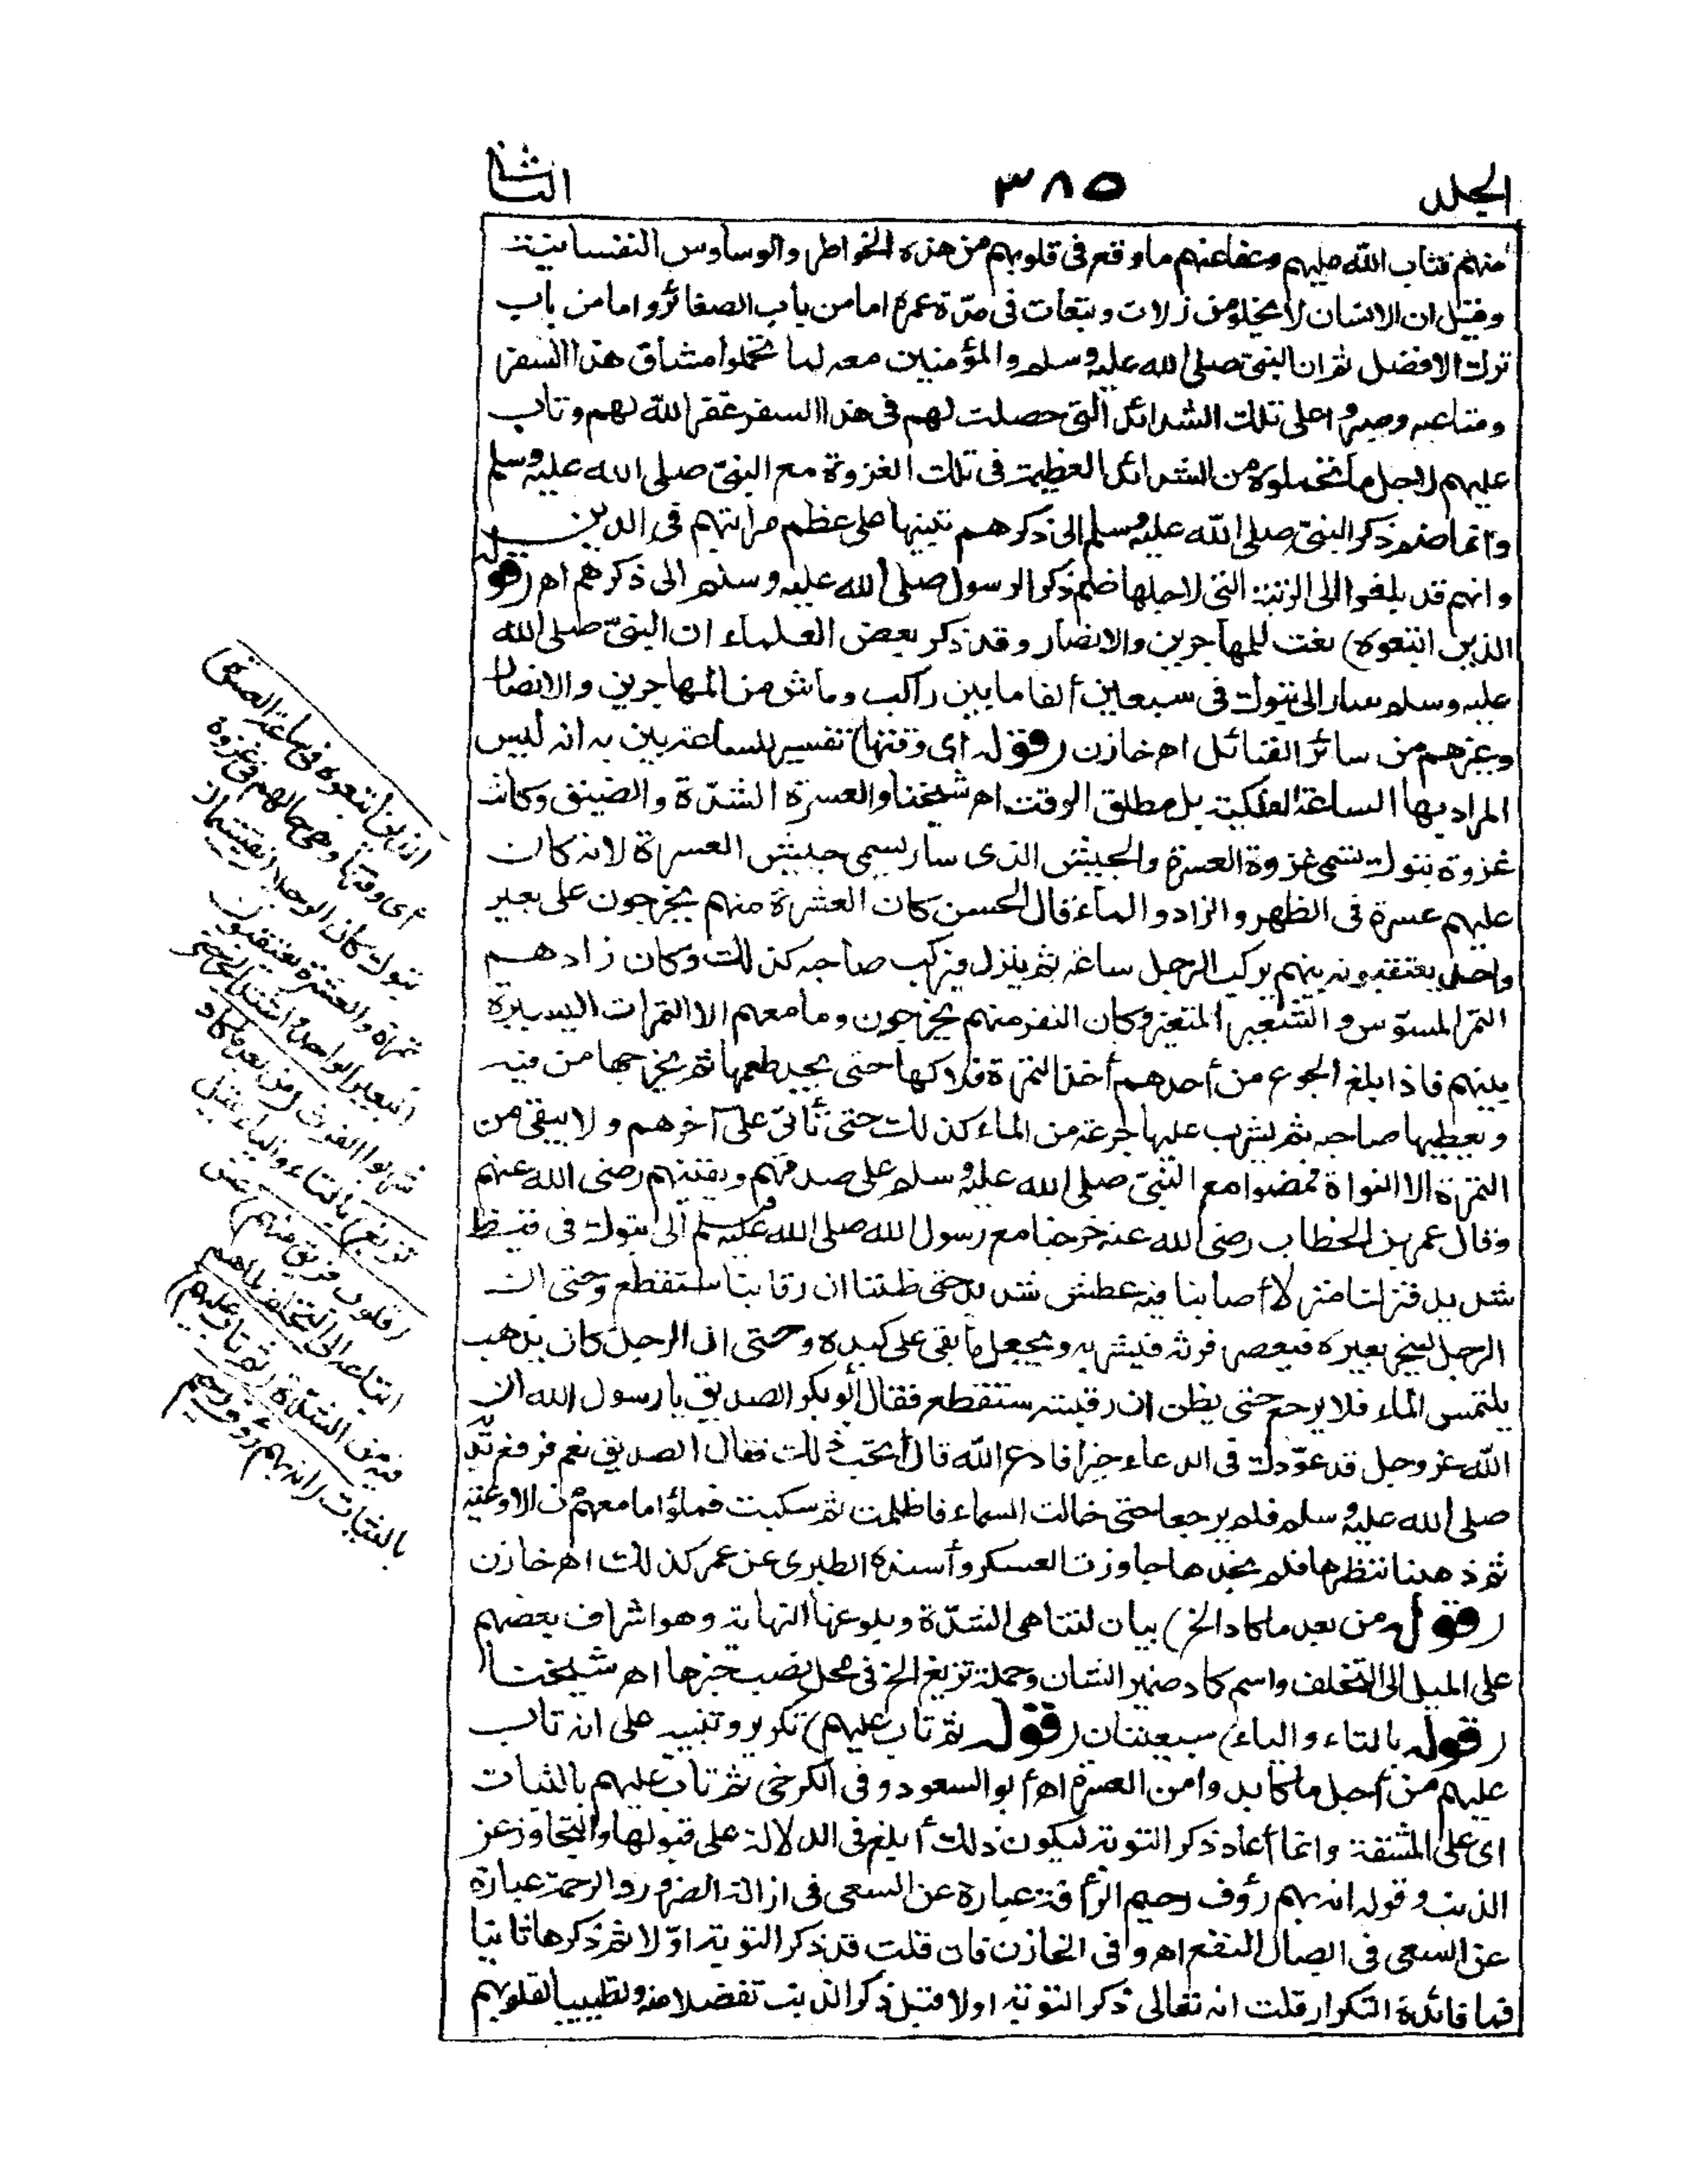 الجلد ٣٨٥ الثانى
منهم فتاب الله عليهم وعفا عنهم ما وقع فى قلوبهم من هذه الخواطر والوساوس النفسانية
وقيل ان الانسان لا يخلو من زلات وتبعات فى مدّة عمره اما من باب الصغائر واما من باب
ترك الافضل ثم ان النبىّ صلى الله عليه وسلم والمؤمنين معه لما تحملوا مشاق هذا السفر
ومتاعبه وصبروا على تلك الشدائد التى حصلت لهم فى هذا السفر غفر الله لهم وتاب
عليهم لاجل ما تحملوه من الشدائد العظيمة فى تلك الغزوة مع النبىّ صلى الله عليه وسلم
وانما ضم ذكر النبىّ صلى الله عليه وسلم الى ذكرهم تنبيها على عظم مراتبهم فى الدين
وانهم قد بلغوا الى الرتبة التى لاجلها ضم ذكر الرسول صلى الله عليه وسلم الى ذكرهم اهـ (قوله
الذين اتبعوه) نعت للمهاجرين والانصار وقد ذكر بعض العلماء ان النبىّ صلى الله
عليه وسلم سار الى تبوك فى سبعين ألفا ما بين راكب وماش من المهاجرين والانصار
وغيرهم من سائر القبائل اهـ خازن (قوله أى وقتها) تفسير للساعة بين به انه ليس
المراد بها الساعة الفلكية بل مطلق الوقت اهـ شيخنا والعسرة الشدّة والضيق وكانت
غزوة تبوك تسمى غزوة العسرة والجيش الذى سار يسمى جيش العسرة لانه كان
عليهم عسرة فى الظهر والزاد والماء قال الحسن كان العشرة منهم يخرجون على بعير
واحد يعتقبونه بينهم يركب الرجل ساعة ثم ينزل فيركب صاحبه كذلك وكان زادهم
التمر المسوّس والشعير المتغير وكان النفر منهم يخرجون وما معهم الا التمرات اليسيرة
بينهم فاذا بلغ الجوع من أحدهم أخذ التمرة فلاكها حتى يجد طعمها ثم يخرجها من فيه
ويعطيها صاحبه ثم يشرب عليها جرعة من الماء كذلك حتى تأتى على آخرهم ولا يبقى من
التمرة الا النواة فمضوا مع النبىّ صلى الله عليه وسلم على صدقهم ويقينهم رضى الله عنهم
وقال عمر بن الخطاب رضى الله عنه خرجنا مع رسول الله صلى الله عليه وسلم الى تبوك فى قيظ
شديد فنزلنا منزلا أصابنا فيه عطش شديد حتى ظننا ان رقابنا ستقطع وحتى ان
الرجل لينحر بعيره فيعصر فرثه فيشربه ويجعل ما بقى على كبده وحتى ان الرجل كان يذهب
يلتمس الماء فلا يرجع حتى يظن ان رقبته ستقطع فقال أبو بكر الصديق يا رسول الله ان
الله عز وجل قد عوّدك فى الدعاء خيرا فادع الله قال أتحب ذلك فقال الصديق نعم فرفع يديه
صلى الله عليه وسلم فلم يرجعا حتى خالت السماء فاظلمت ثم سكبت فملؤا ما معهم من الاوعية
ثم ذهبنا ننظرها فلم نجدها جاوزت العسكر وأسنده الطبرى عن عمر كذلك اهـ خازن
(قوله من بعد ما كاد الخ) بيان لتناهى الشدّة وبلوغها النهاية وهو اشراف بعضهم
على الميل الى التخلف واسم كاد ضمير الشان وجملة تزيغ الخ فى محل نصب خبرها اهـ شيخنا
(قوله بالتاء والياء) سبعيتان (قوله ثم تاب عليهم) تكرير وتنبيه على انه تاب
عليهم من أجل ما كابدوا من العسرة اهـ أبو السعود وفى الكرخى ثم تاب عليهم بالثبات
اى على المشقة وانما أعاد ذكر التوبة ليكون ذلك أبلغ فى الدلالة على قبولها والتجاوز عن
الذنب وقوله انه بهم رؤف رحيم الرأفة عبارة عن السعى فى ازالة الضرر والرحمة عبارة
عن السعى فى ايصال النفع اهـ وفى الخازن فان قلت قد ذكر التوبة اوّلا ثم ذكرها ثانيا
فما فائدة التكرار قلت انه تعالى ذكر التوبة اولا قبل ذكر الذنب تفضلا منه وتطييبا لقلوبهم
الذين اتبعوه فى ساعة العسرة)
اى وقتها وهى حالهم فى غزوة
تبوك كان الرجلان يقتسمان
تمرة والعشرة يعتقبون
البعير الواحد واشتد الحر حتى
شربوا الفرث (من بعد ما كاد
تزيغ) بالتاء والياء تميل
(قلوب فريق منهم) عن
اتباعه الى التخلف لما هم
فيه من الشدّة (ثم تاب عليهم)
بالثبات (انه بهم رؤف رحيم